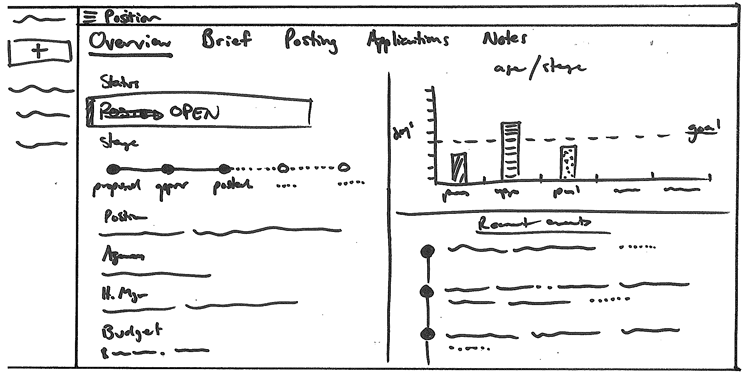 Position
Overview Brief Posting Applications Notes
Status
OPEN
Stage
proposal apprv posted
Position
Agency
H. Mgr
Budget
age/stage
days
goal
Recent events